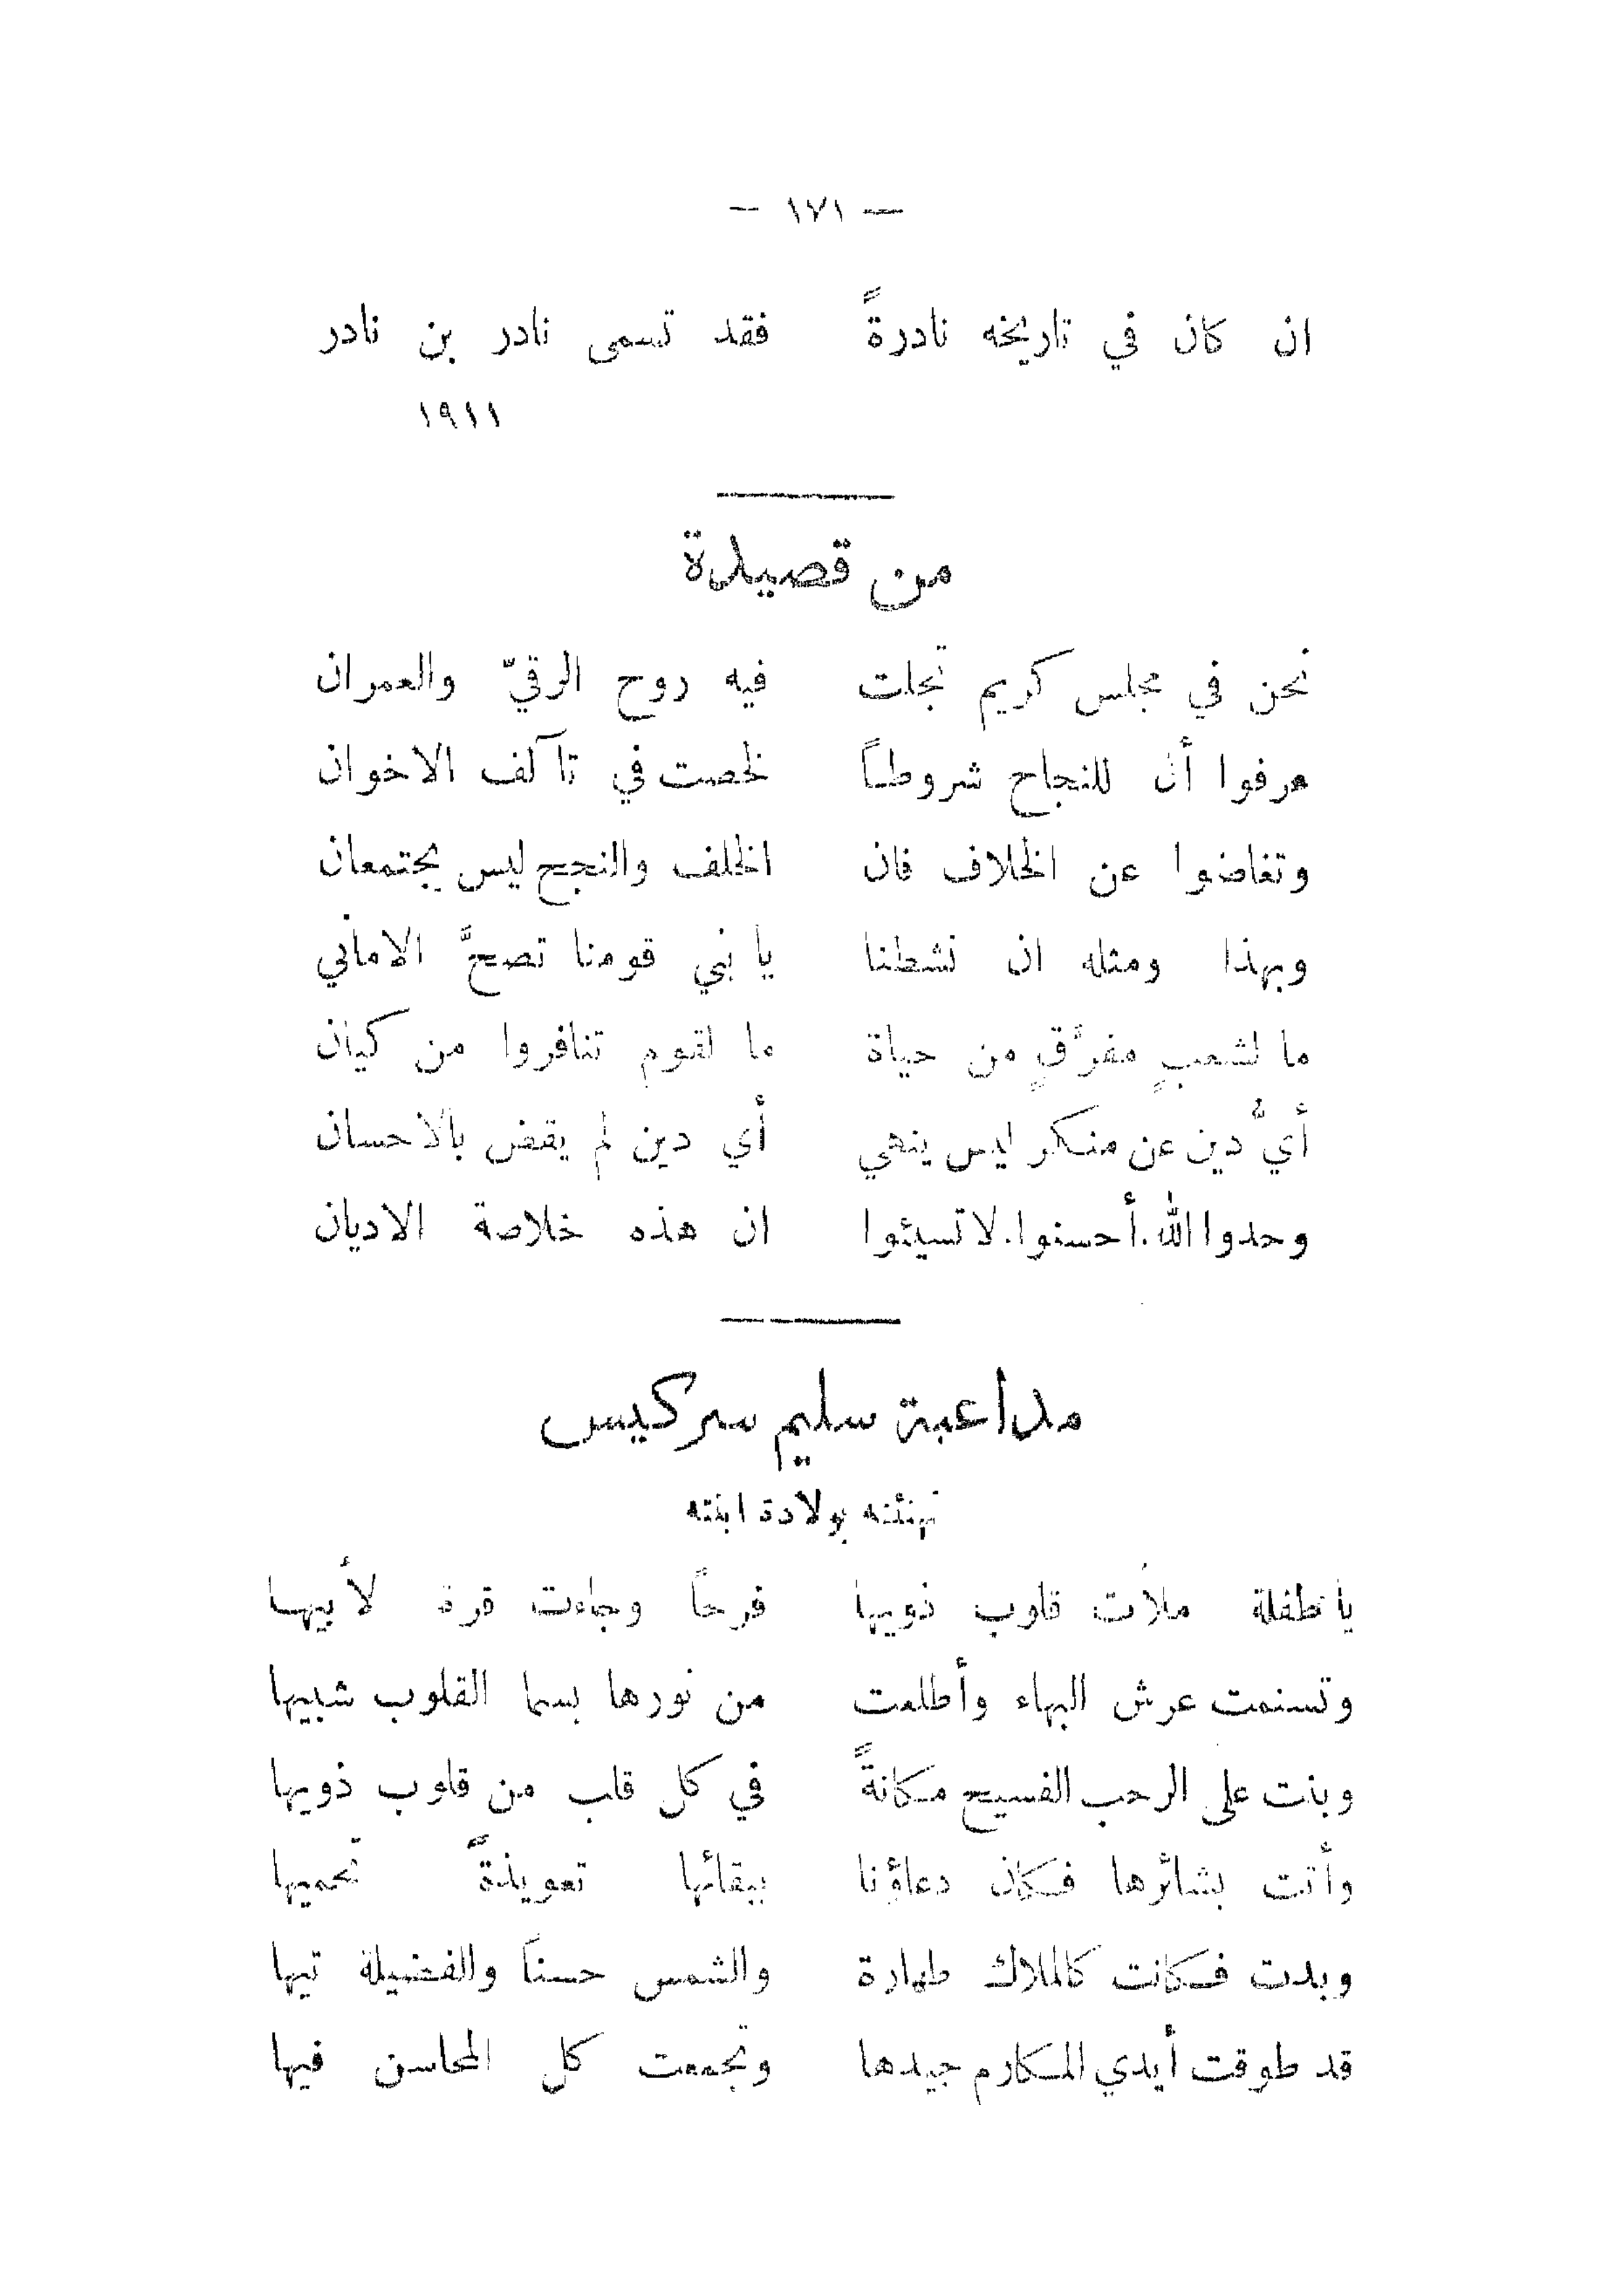 — ١٧١ —
ان كان في تاريخه نادرةً فقد تسمى نادر بن نادر
١٩١١
من قصيدة
نحن في مجلس كريم تجلت فيه روح الرقيّ والعمران
عرفوا أن للنجاح شروطاً لخصت في تآلف الاخوان
وتغاضوا عن الخلاف فان الخلف والنجح ليس يجتمعان
وبهذا ومثله ان نشطنا يا بني قومنا تصحَّ الاماني
ما لشعبٍ مفرَّقٍ من حياة ما لقوم تنافروا من كيان
أيُّ دين عن منكر ليس ينهي أي دين لم يقض بالاحسان
وحدوا الله.أحسنوا.لا تسيئوا ان هذه خلاصة الاديان
مداعبة سليم سركيس
تهنئته بولادة ابنته
يا طفلة ملأت قلوب ذويها فرحاً وجاءت قرة لأبيها
وتسنمت عرش البهاء وأطلعت من نورها بسما القلوب شبيها
وبنت على الرحب الفسيح مكانةً في كل قلب من قلوب ذويها
وأتت بشائرها فكان دعاؤنا ببقائها تعويذةً تحميها
وبدت فكانت كالملاك طهارة والشمس حسناً والفضيلة تيها
قد طوقت أيدي المكارم جيدها وتجمعت كل المحاسن فيها